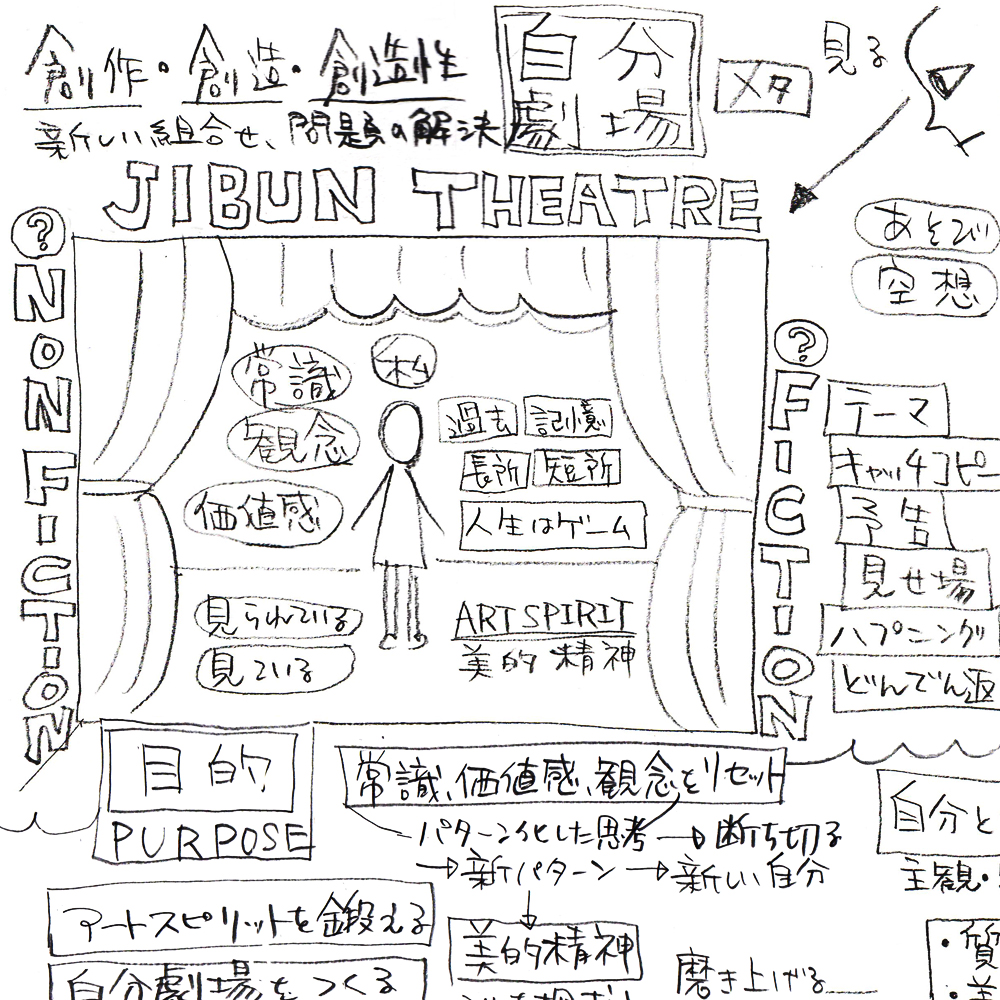 創作・創造・創造性
新しい組合せ、問題の解決
自分
劇場
メタ
見る
JIBUN THEATRE
あそび
空想
?
NON FICTION
?
FICTION
常識
観念
価値感
私
過去
記憶
長所
短所
人生はゲーム
見られている
見ている
ART SPIRIT
美的精神
テーマ
キャッチコピー
予告
見せ場
ハプニング
どんでん返
目的
PURPOSE
常識、価値感、観念をリセット
パターン化した思考→断ち切る
→新パターン→新しい自分
自分と
主観・
アートスピリットを鍛える
自分劇場をつくる
美的精神
磨き上げる
・質